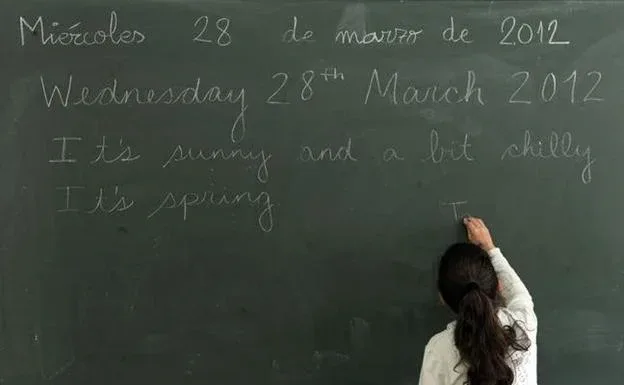 Miércoles 28 de marzo de 2012
Wednesday 28th March 2012
It's sunny and a bit chilly
It's spring T